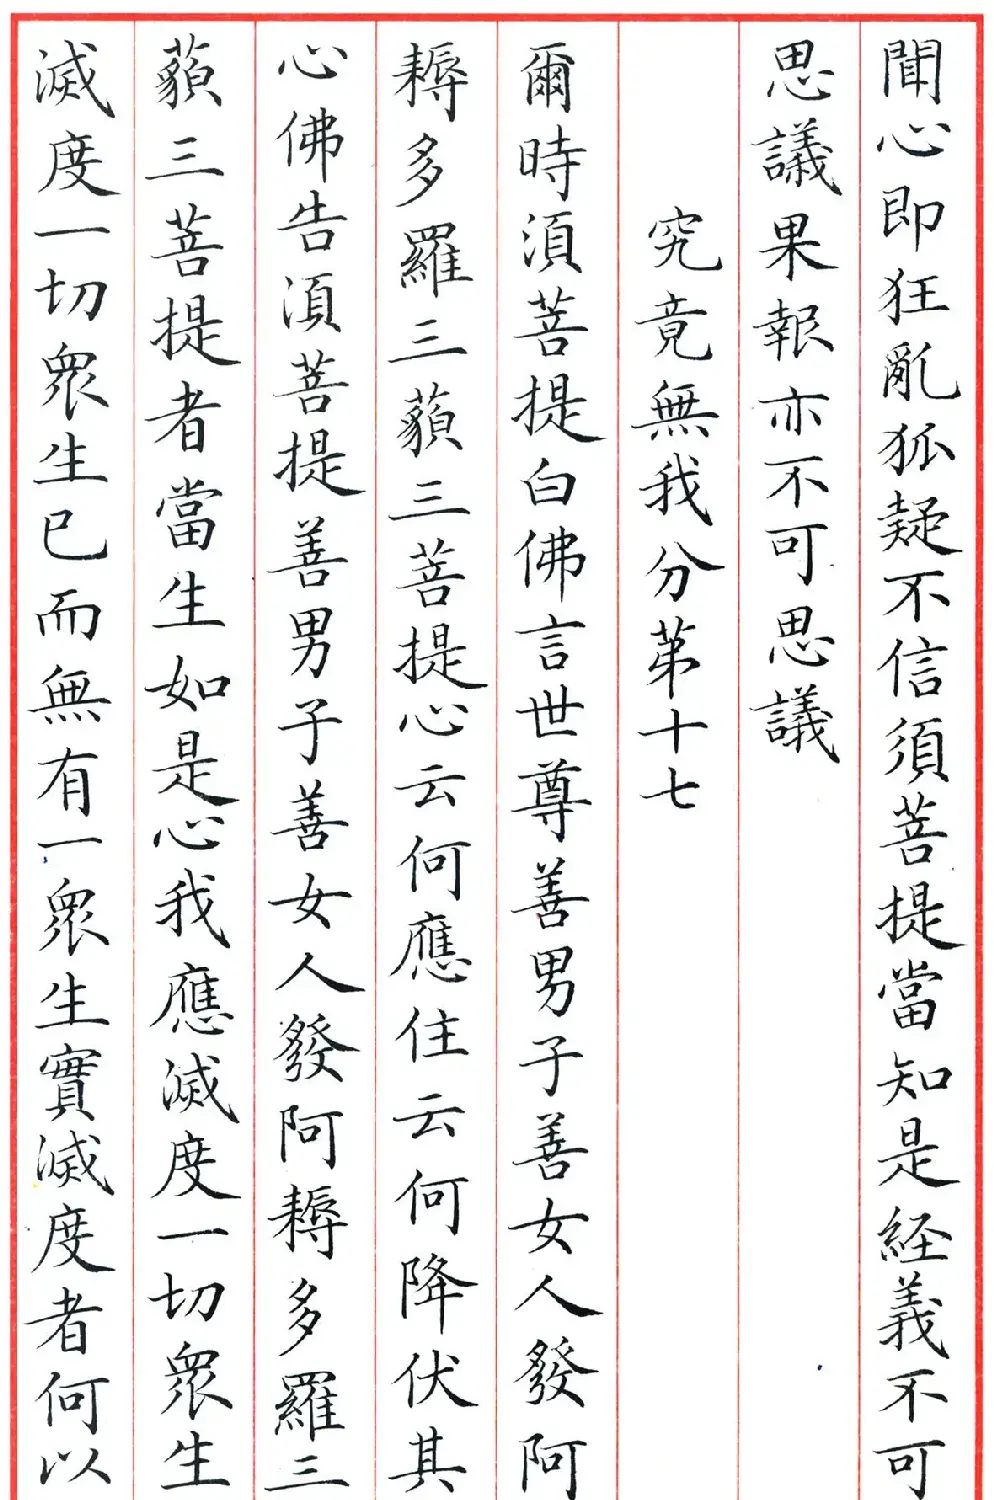 聞心即狂亂狐疑不信須菩提當知是経義不可
思議果報亦不可思議
究竟無我分第十七
爾時須菩提白佛言世尊善男子善女人發阿
耨多羅三藐三菩提心云何應住云何降伏其
心佛告須菩提善男子善女人發阿耨多羅三
藐三菩提者當生如是心我應滅度一切衆生
滅度一切衆生已而無有一衆生實滅度者何以